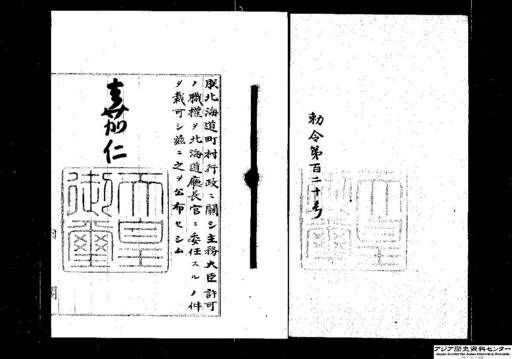 勅令第百二十号
朕北海道町村行政ニ関シ主務大臣許可
ノ職権ヲ北海道庁長官ニ委任スルノ件
ヲ裁可シ茲ニ之ヲ公布セシム
嘉仁
天皇
御璽
内
閣
アジア歴史資料センター
Japan Center for Asian Historical Records